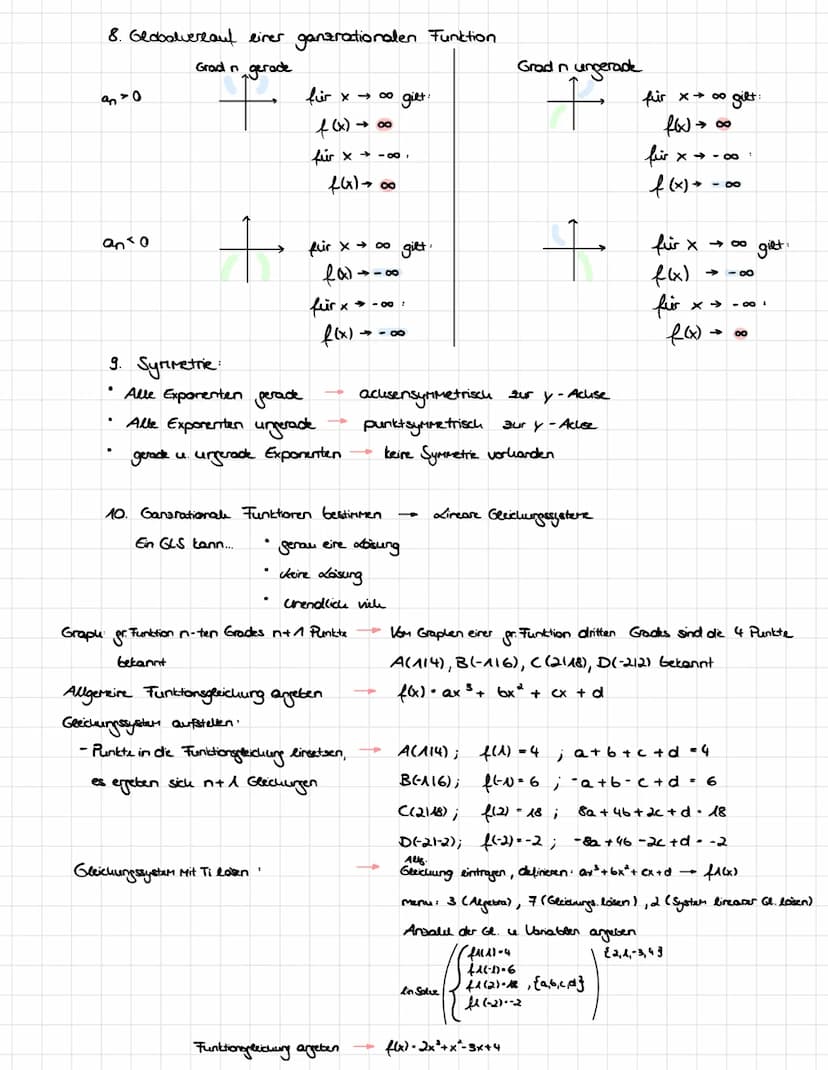 8. Globalverlauf einer ganzrationalen Funktion
Grad n gerade
an > 0
für x → ∞ gilt:
f(x) → ∞
für x → -∞ :
f(x) → ∞
Grad n ungerade
für x → ∞ gilt:
f(x) → ∞
für x → -∞ :
f(x) → -∞
an < 0
für x → ∞ gilt:
f(x) → -∞
für x → -∞ :
f(x) → -∞
für x → ∞ gilt:
f(x) → -∞
für x → -∞ :
f(x) → ∞
9. Symmetrie:
• Alle Exponenten gerade → achsensymmetrisch zur y-Achse
• Alle Exponenten ungerade → punktsymmetrisch zur y-Achse
• gerade u. ungerade Exponenten → keine Symmetrie vorhanden
10. Ganzrationale Funktionen bestimmen → Lineare Gleichungssysteme
Ein GLS kann... • genau eine Lösung
• keine Lösung
• unendlich viele
Graph: gr. Funktion n-ten Grades n+1 Punkte → Vom Graphen einer gr. Funktion dritten Grades sind die 4 Punkte
bekannt A(1|4), B(-1|6), C(2|18), D(-2|2) bekannt
Allgemeine Funktionsgleichung angeben → f(x) = ax³ + bx² + cx + d
Gleichungssystem aufstellen:
- Punkte in die Funktionsgleichung einsetzen, → A(1|4); f(1) = 4 ; a + b + c + d = 4
es ergeben sich n+1 Gleichungen B(-1|6); f(-1) = 6 ; -a + b - c + d = 6
C(2|18); f(2) = 18 ; 8a + 4b + 2c + d = 18
D(-2|-2); f(-2) = -2 ; -8a + 4b - 2c + d = -2
Gleichungssystem mit Ti lösen: → Allg. Gleichung eintragen, definieren: ax³ + bx² + cx + d → f1(x)
menu: 3 (Algebra), 7 (Gleichungs. lösen), 2 (System linearer Gl. lösen)
Anzahl der Gl. u Variablen angeben
linSolve ( { f1(1)=4
f1(-1)=6
f1(2)=18 , {a,b,c,d} ) {2,1,-3,4}
f1(-2)=-2
Funktionsgleichung angeben → f(x) = 2x³ + x² - 3x + 4